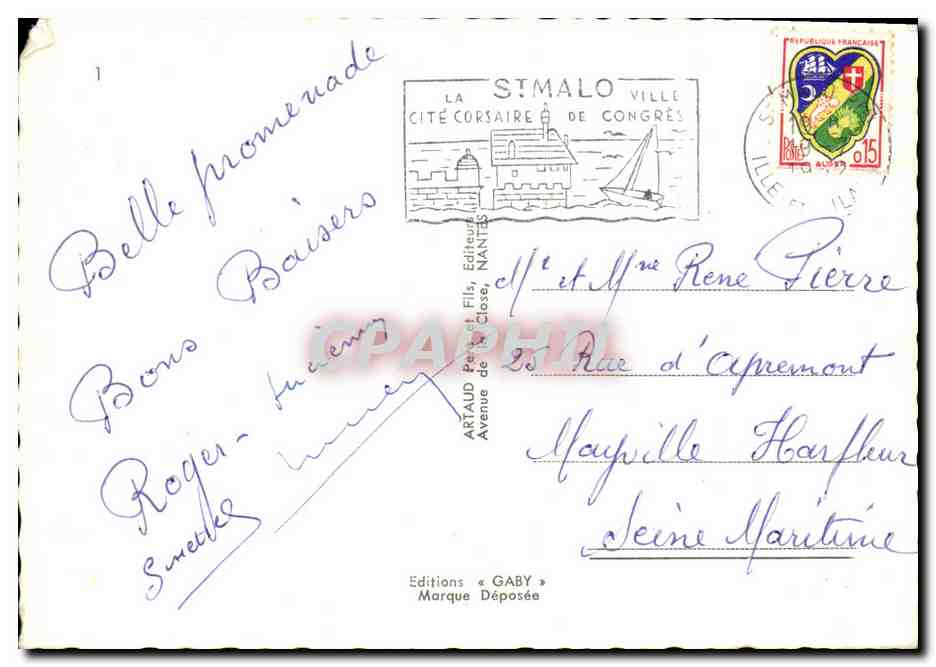 1
Belle promenade
Bons Baisers
Roger -
LA ST MALO VILLE
CITÉ CORSAIRE DE CONGRÈS
REPUBLIQUE FRANÇAISE
POSTES ALGER 0.15
ILLE
ARTAUD Père et Fils, Editeurs
Avenue de la Close, NANTES
CPAPHIL
Mr et Mme René Pierre
25 Rue d'Apremont
Mayville Harfleur
Seine Maritime
Editions « GABY »
Marque Déposée